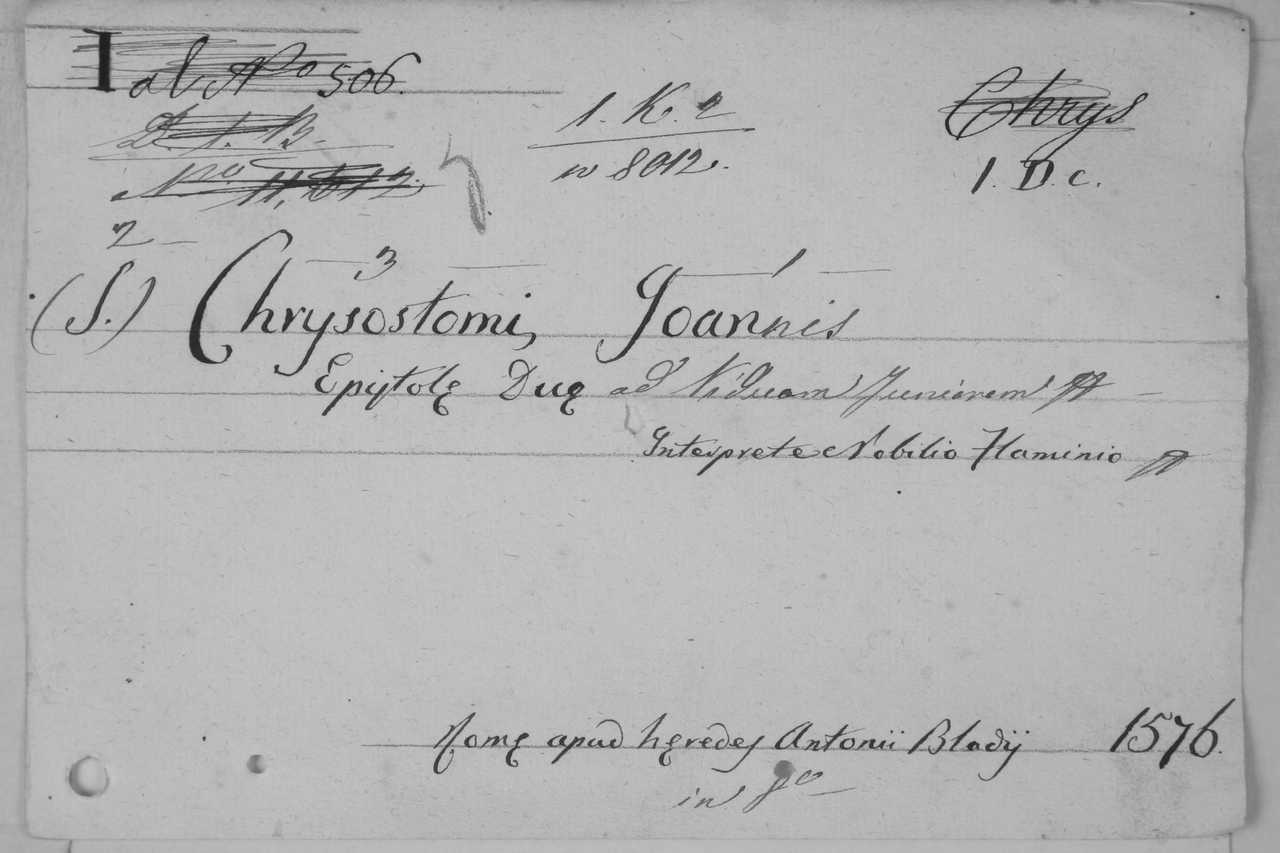 I al. No 506.
1. K. 2
Chrys
D. 1. B.
No 11,512.
n 8012.
1. D. c.
2 3 1
(S.) Chrysostomi, Joannis
Epistolę Duę ad Viduam Juniorem
Interprete Nobilio Flaminio
Romę apud hęredes Antonii Bladij 1576.
in 8o